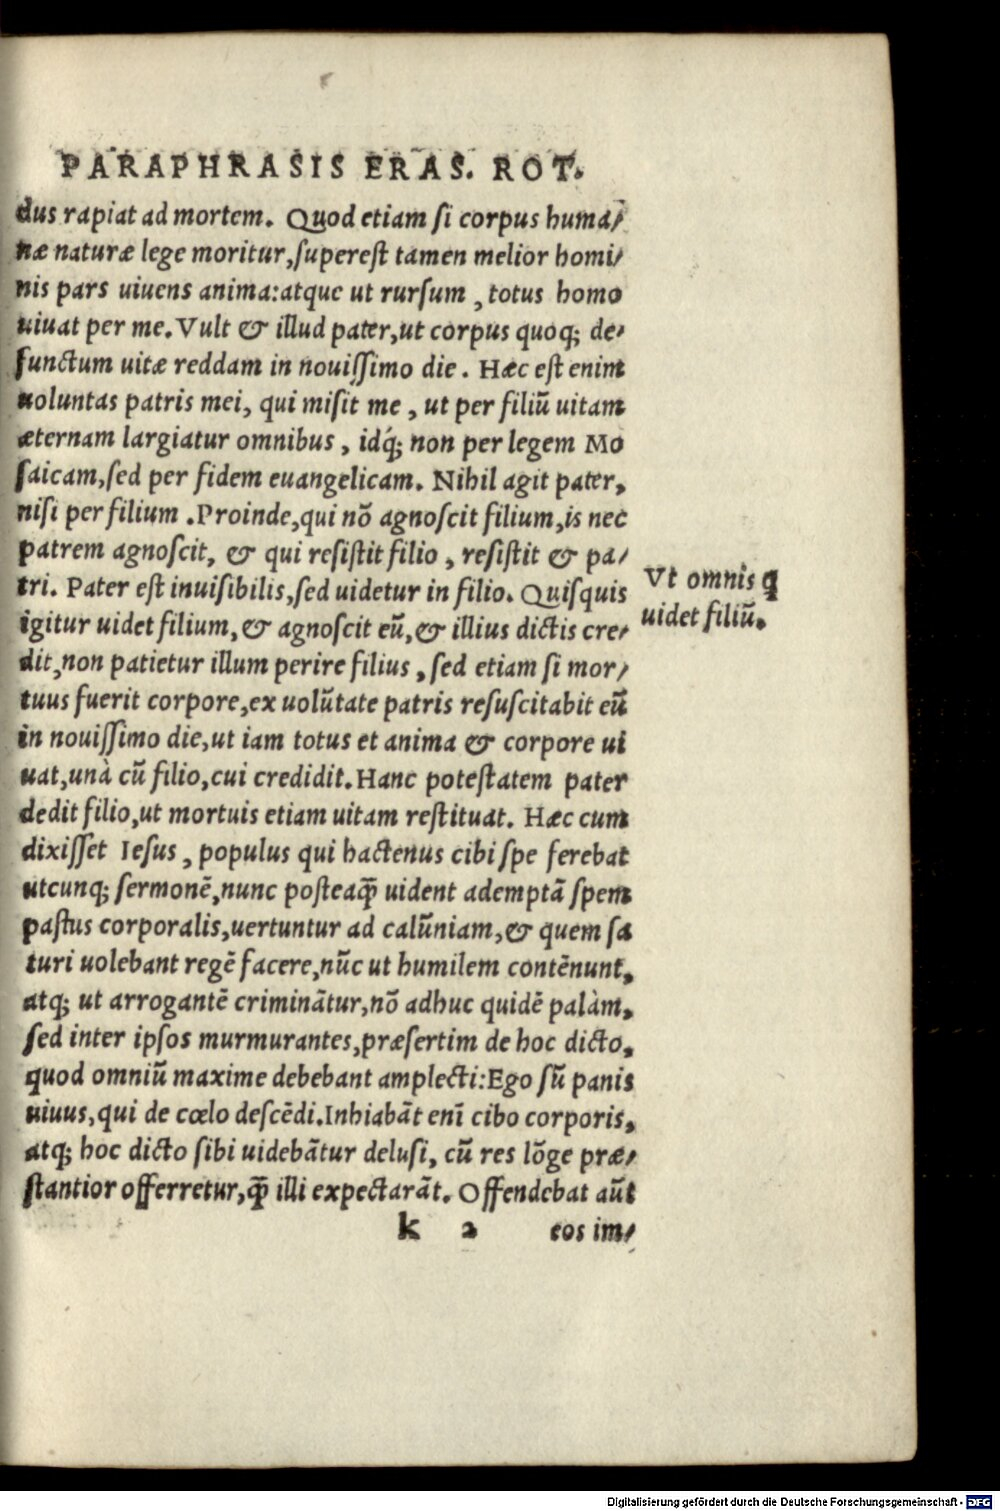 PARAPHRASIS ERAS. ROT.
dus rapiat ad mortem. Quod etiam ſi corpus huma/
næ naturæ lege moritur,ſupereſt tamen melior homi/
nis pars uiuens anima:atque ut rurſum , totus homo
uiuat per me. Vult & illud pater,ut corpus quoq; de/
functum uitæ reddam in nouiſſimo die . Hæc eſt enim
uoluntas patris mei, qui miſit me , ut per filiū uitam
æternam largiatur omnibus , idq́; non per legem Mo
ſaicam,ſed per fidem euangelicam. Nihil agit pater,
niſi per filium .Proinde,qui nō agnoſcit filium,is nec
patrem agnoſcit, & qui reſiſtit filio , reſiſtit & pa/
tri. Pater eſt inuiſibilis,ſed uidetur in filio. Quiſquis
igitur uidet filium,& agnoſcit eū,& illius dictis cre/
dit,non patietur illum perire filius , ſed etiam ſi mor/
tuus fuerit corpore,ex uolūtate patris reſuſcitabit eū
in nouiſſimo die,ut iam totus et anima & corpore ui
uat,unà cū filio,cui credidit. Hanc poteſtatem pater
dedit filio,ut mortuis etiam uitam reſtituat. Hæc cum
dixiſſet Ieſus , populus qui hactenus cibi ſpe ferebat
utcunq; ſermonē,nunc poſteaq̄ uident ademptā ſpem
paſtus corporalis,uertuntur ad calūniam,& quem ſa
turi uolebant regē facere,nūc ut humilem contēnunt,
atq; ut arrogantē criminātur,nō adhuc quidē palàm,
ſed inter ipſos murmurantes,præſertim de hoc dicto,
quod omniū maxime debebant amplecti:Ego ſū panis
uiuus,qui de cœlo deſcēdi.Inhiabāt enī cibo corporis,
atq; hoc dicto ſibi uidebātur deluſi, cū res lōge præ/
ſtantior offerretur,q̄ illi expectarāt. Offendebat aūt
k 2 eos im/
Vt omnis q
uidet filiū.
Digitalisierung gefördert durch die Deutsche Forschungsgemeinschaft - DFG